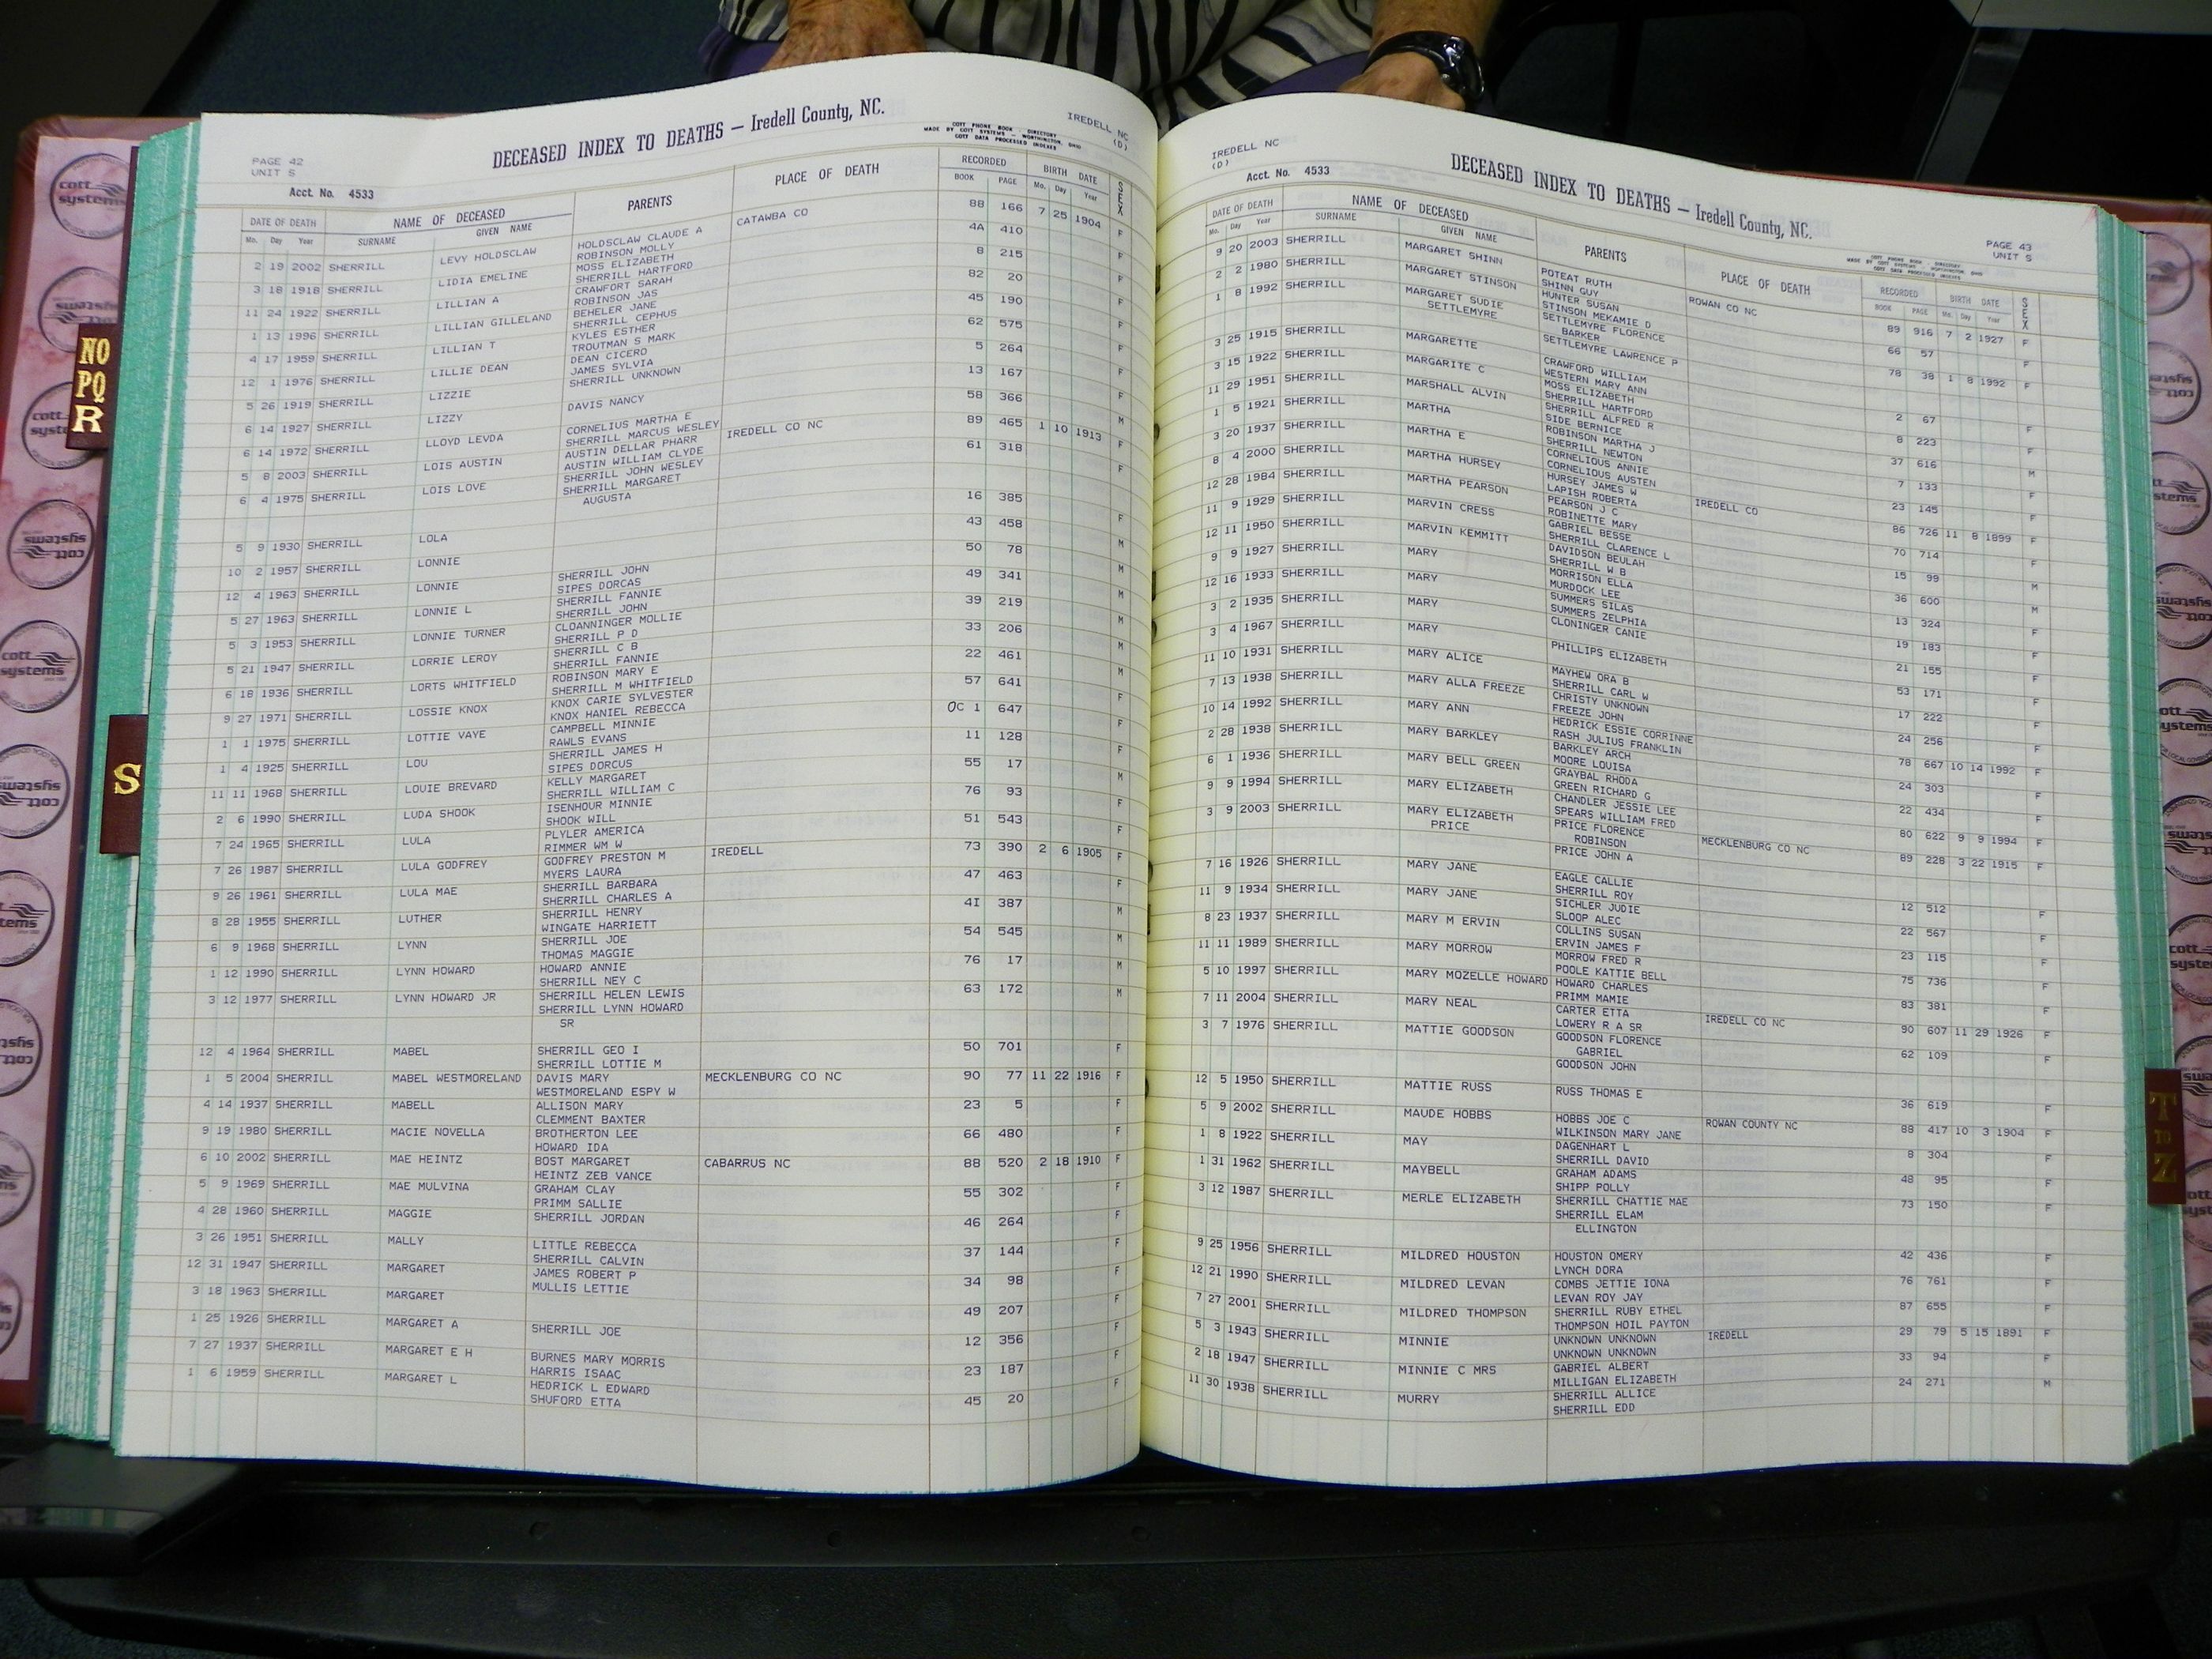 IREDELL NC
(D)
PAGE 42
UNIT S
DECEASED INDEX TO DEATHS — Iredell County, NC.
COTT PHONE BOOK DIRECTORY
MADE BY COTT SYSTEMS — WORTHINGTON, OHIO
COTT DATA PROCESSED INDEXES
Acct. No. 4533
DATE OF DEATH NAME OF DECEASED PARENTS PLACE OF DEATH RECORDED BIRTH DATE SEX
Mo. Day Year SURNAME GIVEN NAME BOOK PAGE Mo. Day Year
2 19 2002 SHERRILL LEVY HOLDSCLAW HOLDSCLAW CLAUDE A CATAWBA CO 88 166 7 25 1904 F
ROBINSON MOLLY
3 18 1918 SHERRILL LIDIA EMELINE MOSS ELIZABETH 4A 410 F
SHERRILL HARTFORD
11 24 1922 SHERRILL LILLIAN A CRAWFORT SARAH 8 215 F
ROBINSON JAS
1 13 1996 SHERRILL LILLIAN GILLELAND BEHELER JANE 82 20 F
SHERRILL CEPHUS
4 17 1959 SHERRILL LILLIAN T KYLES ESTHER 45 190 F
TROUTMAN S MARK
12 1 1976 SHERRILL LILLIE DEAN DEAN CICERO 62 575 F
JAMES SYLVIA
5 26 1919 SHERRILL LIZZIE SHERRILL UNKNOWN 5 264 F
6 14 1927 SHERRILL LIZZY DAVIS NANCY 13 167 F
6 14 1972 SHERRILL LLOYD LEVDA CORNELIUS MARTHA E 58 366 M
SHERRILL MARCUS WESLEY
5 8 2003 SHERRILL LOIS AUSTIN AUSTIN DELLAR PHARR IREDELL CO NC 89 465 1 10 1913 F
AUSTIN WILLIAM CLYDE
6 4 1975 SHERRILL LOIS LOVE SHERRILL JOHN WESLEY 61 318 F
SHERRILL MARGARET
AUGUSTA
5 9 1930 SHERRILL LOLA 16 385 F
10 2 1957 SHERRILL LONNIE 43 458 M
12 4 1963 SHERRILL LONNIE SHERRILL JOHN 50 78 M
SIPES DORCAS
5 27 1963 SHERRILL LONNIE L SHERRILL FANNIE 49 341 M
SHERRILL JOHN
5 3 1953 SHERRILL LONNIE TURNER CLOANNINGER MOLLIE 39 219 M
SHERRILL P D
5 21 1947 SHERRILL LORRIE LEROY SHERRILL C B 33 206 M
SHERRILL FANNIE
6 18 1936 SHERRILL LORTS WHITFIELD ROBINSON MARY E 22 461 M
SHERRILL M WHITFIELD
9 27 1971 SHERRILL LOSSIE KNOX KNOX CARIE SYLVESTER 57 641 F
KNOX HANIEL REBECCA
1 1 1975 SHERRILL LOTTIE VAYE CAMPBELL MINNIE OC 1 647 F
RAWLS EVANS
1 4 1925 SHERRILL LOU SHERRILL JAMES H 11 128 F
SIPES DORCUS
11 11 1968 SHERRILL LOUIE BREVARD KELLY MARGARET 55 17 M
SHERRILL WILLIAM C
2 6 1990 SHERRILL LUDA SHOOK ISENHOUR MINNIE 76 93 F
SHOOK WILL
7 24 1965 SHERRILL LULA PLYLER AMERICA 51 543 F
RIMMER WM W
7 26 1987 SHERRILL LULA GODFREY GODFREY PRESTON M IREDELL 73 390 2 6 1905 F
MYERS LAURA
9 26 1961 SHERRILL LULA MAE SHERRILL BARBARA 47 463 F
SHERRILL CHARLES A
8 28 1955 SHERRILL LUTHER SHERRILL HENRY 41 387 M
WINGATE HARRIETT
6 9 1968 SHERRILL LYNN SHERRILL JOE 54 545 M
THOMAS MAGGIE
1 12 1990 SHERRILL LYNN HOWARD HOWARD ANNIE 76 17 M
SHERRILL NEY C
3 12 1977 SHERRILL LYNN HOWARD JR SHERRILL HELEN LEWIS 63 172 M
SHERRILL LYNN HOWARD
SR
12 4 1964 SHERRILL MABEL SHERRILL GEO I 50 701 F
SHERRILL LOTTIE M
1 5 2004 SHERRILL MABEL WESTMORELAND DAVIS MARY MECKLENBURG CO NC 90 77 11 22 1916 F
WESTMORELAND ESPY W
4 14 1937 SHERRILL MABELL ALLISON MARY 23 5 F
CLEMMENT BAXTER
9 19 1980 SHERRILL MACIE NOVELLA BROTHERTON LEE 66 480 F
HOWARD IDA
6 10 2002 SHERRILL MAE HEINTZ BOST MARGARET CABARRUS NC 88 520 2 18 1910 F
HEINTZ ZEB VANCE
5 9 1969 SHERRILL MAE MULVINA GRAHAM CLAY 55 302 F
PRIMM SALLIE
4 28 1960 SHERRILL MAGGIE SHERRILL JORDAN 46 264 F
3 26 1951 SHERRILL MALLY LITTLE REBECCA 37 144 F
SHERRILL CALVIN
12 31 1947 SHERRILL MARGARET JAMES ROBERT P 34 98 F
MULLIS LETTIE
3 18 1963 SHERRILL MARGARET 49 207 F
1 25 1926 SHERRILL MARGARET A SHERRILL JOE 12 356 F
7 27 1937 SHERRILL MARGARET E H BURNES MARY MORRIS 23 187 F
HARRIS ISAAC
1 6 1959 SHERRILL MARGARET L HEDRICK L EDWARD 45 20 F
SHUFORD ETTA
IREDELL NC
(D)
DECEASED INDEX TO DEATHS — Iredell County, NC.
PAGE 43
UNIT S
Acct. No. 4533
DATE OF DEATH NAME OF DECEASED PARENTS PLACE OF DEATH RECORDED BIRTH DATE SEX
Mo. Day Year SURNAME GIVEN NAME BOOK PAGE Mo. Day Year
9 20 2003 SHERRILL MARGARET SHINN POTEAT RUTH ROWAN CO NC 89 916 7 2 1927 F
SHINN GUY
2 2 1980 SHERRILL MARGARET STINSON HUNTER SUSAN 66 57 F
STINSON MEKAMIE D
1 8 1992 SHERRILL MARGARET SUDIE SETTLEMYRE FLORENCE 78 38 1 8 1992 F
SETTLEMYRE BARKER
SETTLEMYRE LAWRENCE P
3 25 1915 SHERRILL MARGARETTE CRAWFORD WILLIAM 2 67 F
WESTERN MARY ANN
3 15 1922 SHERRILL MARGARITE C MOSS ELIZABETH 8 223 F
SHERRILL HARTFORD
11 29 1951 SHERRILL MARSHALL ALVIN SHERRILL ALFRED R 37 616 M
SIDE BERNICE
1 5 1921 SHERRILL MARTHA ROBINSON MARTHA J 7 133 F
SHERRILL NEWTON
3 20 1937 SHERRILL MARTHA E CORNELIOUS ANNIE 23 145 F
CORNELIOUS AUSTEN
8 4 2000 SHERRILL MARTHA HURSEY HURSEY JAMES W IREDELL CO 86 726 11 8 1899 F
LAPISH ROBERTA
12 28 1984 SHERRILL MARTHA PEARSON PEARSON J C 70 714 F
ROBINETTE MARY
11 9 1929 SHERRILL MARVIN CRESS GABRIEL BESSE 15 99 M
SHERRILL CLARENCE L
12 11 1950 SHERRILL MARVIN KEMMITT DAVIDSON BEULAH 36 600 M
SHERRILL W B
9 9 1927 SHERRILL MARY MORRISON ELLA 13 324 F
MURDOCK LEE
12 16 1933 SHERRILL MARY SUMMERS SILAS 19 183 F
SUMMERS ZELPHIA
3 2 1935 SHERRILL MARY CLONINGER CANIE 21 155 F
3 4 1967 SHERRILL MARY PHILLIPS ELIZABETH 53 171 F
11 10 1931 SHERRILL MARY ALICE MAYHEW ORA B 17 222 F
SHERRILL CARL W
7 13 1938 SHERRILL MARY ALLA FREEZE CHRISTY UNKNOWN 24 256 F
FREEZE JOHN
10 14 1992 SHERRILL MARY ANN HEDRICK ESSIE CORRINNE 78 667 10 14 1992 F
RASH JULIUS FRANKLIN
2 28 1938 SHERRILL MARY BARKLEY BARKLEY ARCH 24 303 F
MOORE LOUISA
6 1 1936 SHERRILL MARY BELL GREEN GRAYBAL RHODA 22 434 F
GREEN RICHARD G
9 9 1994 SHERRILL MARY ELIZABETH CHANDLER JESSIE LEE 80 622 9 9 1994 F
SPEARS WILLIAM FRED
3 9 2003 SHERRILL MARY ELIZABETH PRICE FLORENCE MECKLENBURG CO NC 89 228 3 22 1915 F
PRICE ROBINSON
PRICE JOHN A
7 16 1926 SHERRILL MARY JANE EAGLE CALLIE 12 512 F
SHERRILL ROY
11 9 1934 SHERRILL MARY JANE SICHLER JUDIE 22 567 F
SLOOP ALEC
8 23 1937 SHERRILL MARY M ERVIN COLLINS SUSAN 23 115 F
ERVIN JAMES F
11 11 1989 SHERRILL MARY MORROW MORROW FRED R 75 736 F
POOLE KATTIE BELL
5 10 1997 SHERRILL MARY MOZELLE HOWARD HOWARD CHARLES 83 381 F
PRIMM MAMIE
7 11 2004 SHERRILL MARY NEAL CARTER ETTA IREDELL CO NC 90 607 11 29 1926 F
LOWERY R A SR
3 7 1976 SHERRILL MATTIE GOODSON GOODSON FLORENCE 62 109 F
GABRIEL
GOODSON JOHN
12 5 1950 SHERRILL MATTIE RUSS RUSS THOMAS E 36 619 F
5 9 2002 SHERRILL MAUDE HOBBS HOBBS JOE C ROWAN COUNTY NC 88 417 10 3 1904 F
WILKINSON MARY JANE
1 8 1922 SHERRILL MAY DAGENHART L 8 304 F
SHERRILL DAVID
1 31 1962 SHERRILL MAYBELL GRAHAM ADAMS 48 95 F
SHIPP POLLY
3 12 1987 SHERRILL MERLE ELIZABETH SHERRILL CHATTIE MAE 73 150 F
SHERRILL ELAM
ELLINGTON
9 25 1956 SHERRILL MILDRED HOUSTON HOUSTON OMERY 42 436 F
LYNCH DORA
12 21 1990 SHERRILL MILDRED LEVAN COMBS JETTIE IONA 76 761 F
LEVAN ROY JAY
7 27 2001 SHERRILL MILDRED THOMPSON SHERRILL RUBY ETHEL 87 655 F
THOMPSON HOIL PAYTON
5 3 1943 SHERRILL MINNIE UNKNOWN UNKNOWN IREDELL 29 79 5 15 1891 F
UNKNOWN UNKNOWN
2 18 1947 SHERRILL MINNIE C MRS GABRIEL ALBERT 33 94 F
MILLIGAN ELIZABETH
11 30 1938 SHERRILL MURRY SHERRILL ALLICE 24 271 M
SHERRILL EDD
NO
PQ
R
S
T
TO
Z
cott
systems